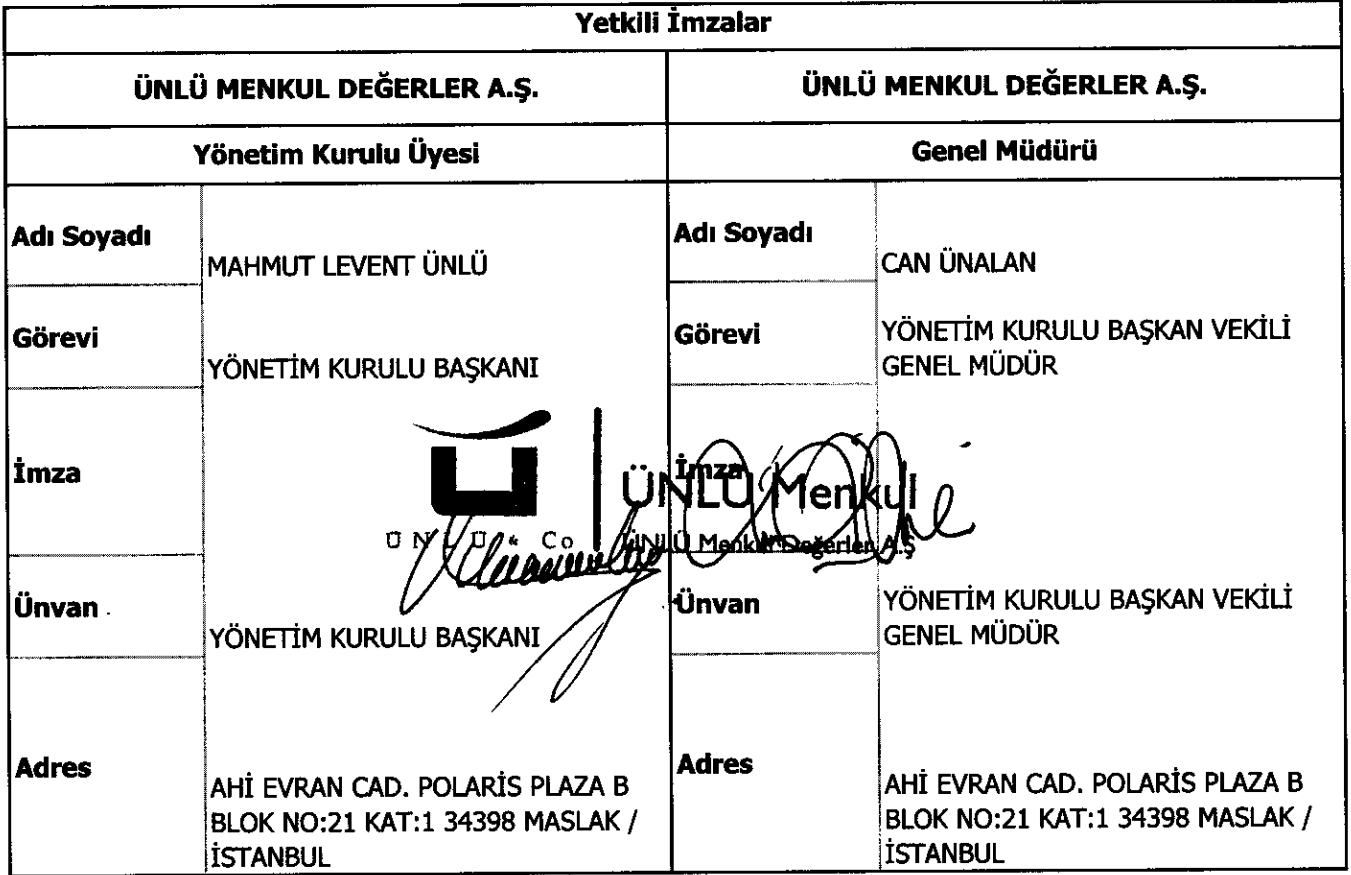 Yetkili İmzalar
ÜNLÜ MENKUL DEĞERLER A.Ş.
ÜNLÜ MENKUL DEĞERLER A.Ş.
Yönetim Kurulu Üyesi
Genel Müdürü
Adı Soyadı
MAHMUT LEVENT ÜNLÜ
Adı Soyadı
CAN ÜNALAN
Görevi
YÖNETİM KURULU BAŞKANI
Görevi
YÖNETİM KURULU BAŞKAN VEKİLİ
GENEL MÜDÜR
İmza
İmza
ÜNLÜ & Co
ÜNLÜ Menkul
ÜNLÜ Menkul Değerler A.Ş
Ünvan
YÖNETİM KURULU BAŞKANI
Ünvan
YÖNETİM KURULU BAŞKAN VEKİLİ
GENEL MÜDÜR
Adres
AHİ EVRAN CAD. POLARİS PLAZA B
BLOK NO:21 KAT:1 34398 MASLAK /
İSTANBUL
Adres
AHİ EVRAN CAD. POLARİS PLAZA B
BLOK NO:21 KAT:1 34398 MASLAK /
İSTANBUL